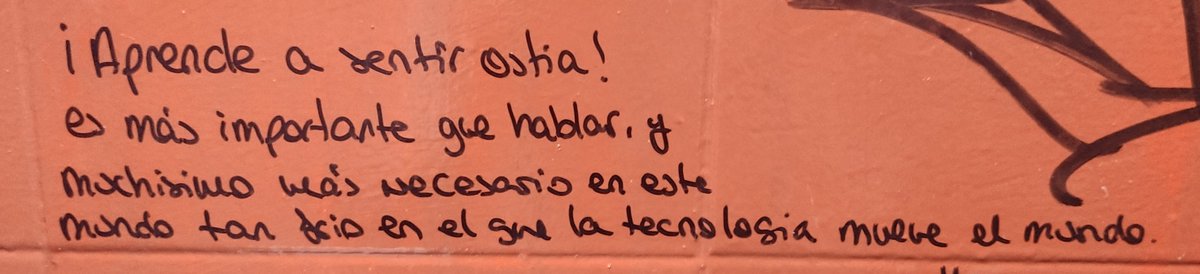 ¡Aprende a sentir ostia!
es más importante que hablar, y
muchisimo más necesario en este
mundo tan frio en el que la tecnologia mueve el mundo.